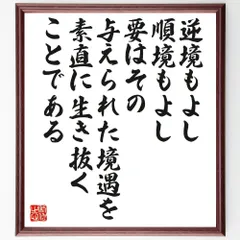 逆境もよし
順境もよし
要はその
与えられた境遇を
素直に生き抜く
ことである